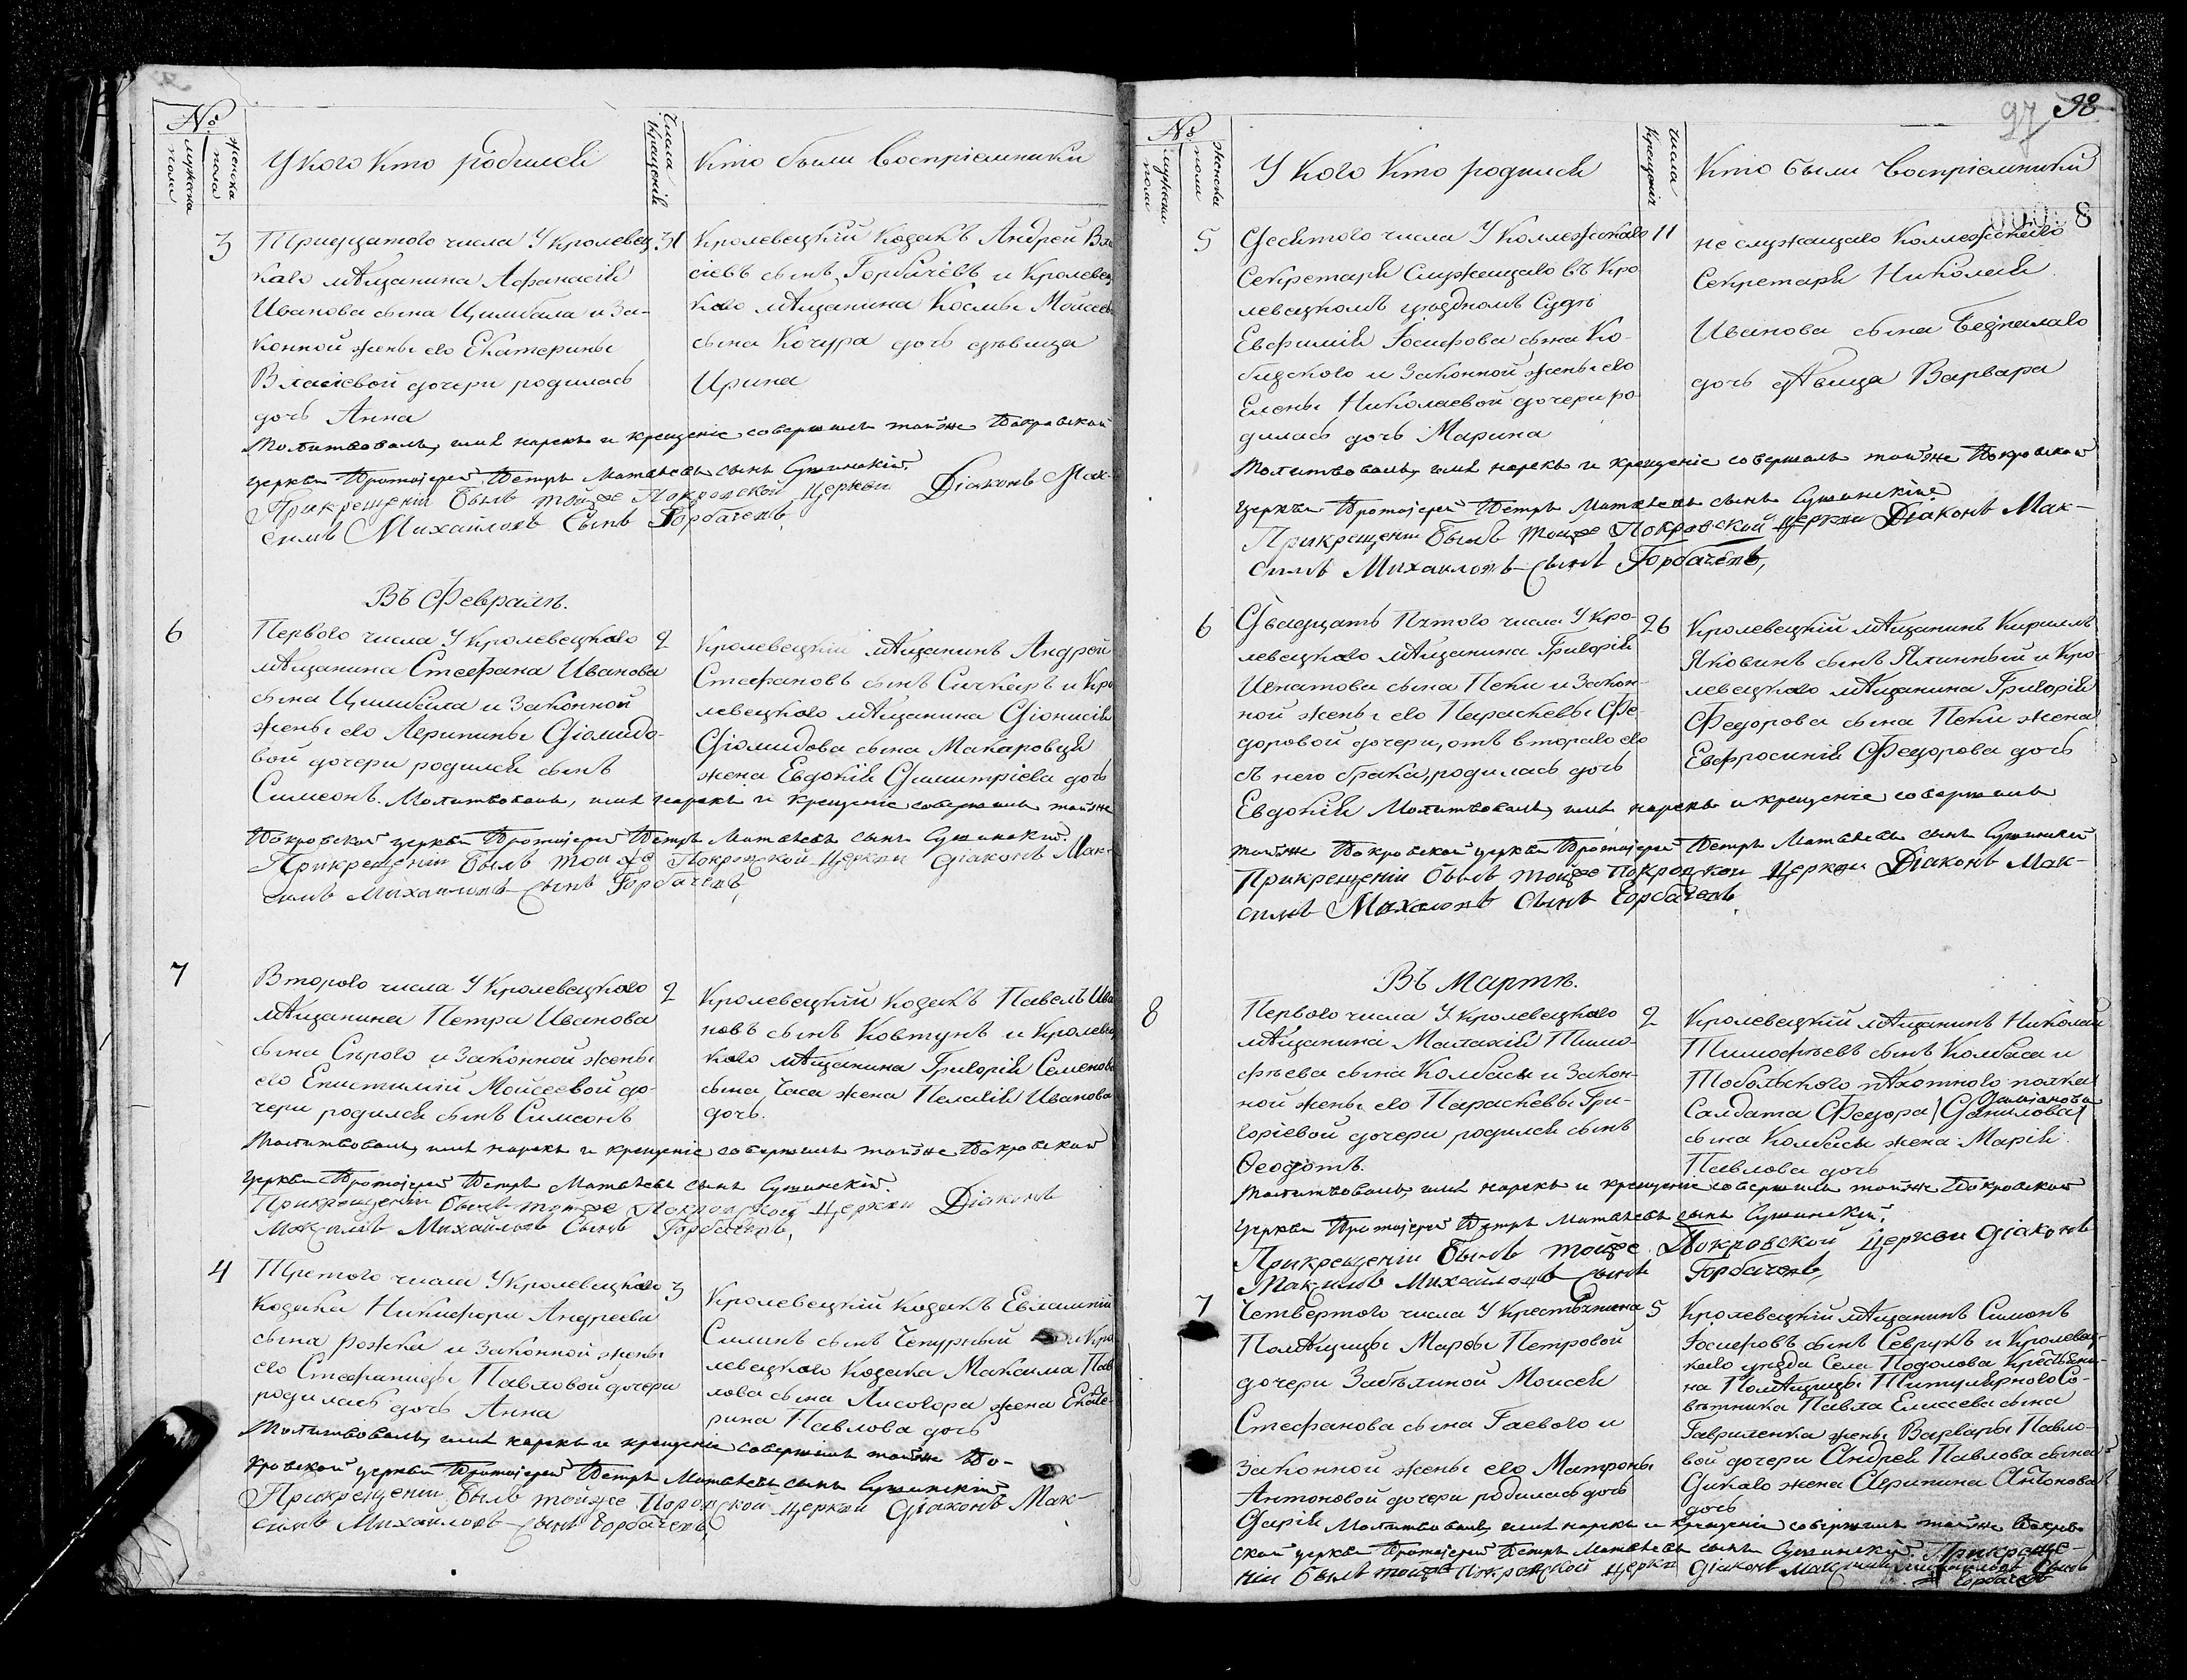 №
мужеска пола
женска пола
У кого кто родился
Числа крещенія
Кто были Воспріемники
3
Тридцатого числа У Кролевец-
каго мѣщанина Афанасія
Иванова сына Цимбала и За-
конной жены его Екатерины
Власіевой дочери родилась
дочь Анна
31
Кролевецкій Козакъ Андрей Вла
сіевъ сынъ Горбачевъ и Кролевец
каго мѣщанина Космы Моисеева
сына Кочура дочь дѣвица
Ирина
Молитвовалъ, имя нарекъ и крещеніе совершилъ тойже Покровской
церкви Протоіерей Петръ Матвѣевъ сынъ Сушинскій.
При крещеніи былъ тойже Покровской Церкви Діаконъ Мак-
симъ Михайловъ Сынъ Горбачевъ,
Въ Февралѣ.
6
Первого числа У Кролевецкаго
мѣщанина Стефана Иванова
сына Цимбала и Законной
жены его Агрипины Діомидо-
вой дочери родился сынъ
Симеонъ.
2
Кролевецкій мѣщанинъ Андрей
Стефановъ сынъ Сичкаръ и Кро
левецкого мѣщанина Діонисія
Діомидова сына Макаровця
жена Евдокія Димитріева дочь
Молитвовалъ, имя нарекъ и крещеніе совершилъ тойже
Покровской церкви Протоіерей Петръ Матвѣевъ сынъ Сушинскій.
При крещеніи былъ тойже Покровской Церкви Діаконъ Мак-
симъ Михайловъ Сынъ Горбачевъ,
7
Второго числа У Кролевецкого
мѣщанина Петра Иванова
сына Сѣрого и Законной жены
его Епистиміи Моисеевой до-
чери родился сынъ Симеонъ
2
Кролевецкій Козакъ Павелъ Ива
новъ сынъ Ковтунъ и Кролевец
кого мѣщанина Григорія Семенова
сына Часа жена Пелагія Иванова
дочь.
Молитвовалъ, имя нарекъ и крещеніе совершилъ тойже Покровской
церкви Протоіерей Петръ Матвѣевъ сынъ Сушинскій.
При крещеніи былъ тойже Покровской Церкви Діаконъ
Максимъ Михайловъ Сынъ Горбачевъ,
4
Третого числа У Кролевецкаго
Козака Никифора Андреева
сына Рожка и Законной жены
его Стефаниды Павловой дочери
родилась дочь Анна
3
Кролевецкій Козакъ Евлампій
Силинъ сынъ Чепурный и Кро
левецкого Козака Максима Пав
лова сына Лисогора жена Екате-
рина Павлова дочь
Молитвовалъ, имя нарекъ и крещеніе совершилъ тойже По-
кровской церкви Протоіерей Петръ Матвѣевъ сынъ Сушинскій
При крещеніи былъ тойже Покровской Церкви Діаконъ Мак-
симъ Михайловъ Сынъ Горбачевъ,
97
98
8
№
мужеска пола
женска пола
У кого кто родился
Числа крещенія
Кто были Воспріемники
5
Десятого числа У Коллежскаго
Секретаря Служащаго въ Кро
левецкомъ уѣздномъ Судѣ
Евфимія Іосифова сына Ко-
бизского и Законной жены его
Елены Николаевой дочери ро-
дилась дочь Марина
11
не служащаго Коллежскаго
Секретаря Николая
Иванова сына Безпалаго
дочь дѣвица Варвара
Молитвовалъ, имя нарекъ и крещеніе совершилъ тойже Покровской
церкви Протоіерей Петръ Матвѣевъ сынъ Сушинскій
При крещеніи былъ тойже Покровской церкви Діаконъ Мак-
симъ Михаиловъ Сынъ Горбачевъ,
6
Двадцать Пятого числа У Кро-
левецкаго мѣщанина Григорія
Игнатова сына Пеки и Закон-
ной жены его Параскевы Фе-
доровой дочери, отъ втораго его
съ него брака, родилась дочь
Евдокія
26
Кролевецкій мѣщанинъ Кириллъ
Яковинъ сынъ Ялинный и Кро-
левецкаго мѣщанина Григорія
Федорова сына Пеки жена
Евфросинія Федорова дочь
Молитвовалъ, имя нарекъ и крещеніе совершилъ
тойже Покровской церкви Протоіерей Петръ Матвѣевъ сынъ Сушинскій
При крещеніи былъ тойже Покровской Церкви Діаконъ Мак-
симъ Михайловъ Сынъ Горбачевъ,
Въ Мартѣ.
8
Первого числа У Кролевецкого
мѣщанина Малахія Тимо-
фѣева сына Колбасы и Закон-
ной жены его Параскевы Гри-
горіевой дочери родился сынъ
Ѳеодотъ.
2
Кролевецкій мѣщанинъ Николай
Тимофѣевъ сынъ Колбаса и
Тобольского пѣхотного полка
Салдата Федора (Данилова) Даміанова
сына Колбасы жена Марія
Павлова дочь
Молитвовалъ, имя нарекъ и крещеніе совершилъ тойже Покровской
церкви Протоіерей Петръ Матвѣевъ сынъ Сушинскій.
При крещеніи былъ тойже Покровской Церкви Діаконъ
Максимъ Михайловъ Сынъ Горбачевъ,
7
Четвертого числа У Крестьянина
Помѣщицы Марфы Петровой
дочери Забѣлиной Моисея
Стефанова сына Гаевого и
Законной жены его Матроны
Антоновой дочери родилась дочь
Дарія
5
Кролевецкій мѣщанинъ Симонъ
Іосифовъ сынъ Севрукъ и Кролевец-
каго уѣзда Села Подолова Крестьяни-
на Помѣщицы Титулярного Со-
вѣтника Павла Елисеева сына
Гавриленка жены Варвары Павло-
вой дочери Андрея Павлова сына
Дикаго жена Агрипина Антонова
дочь
Молитвовалъ, имя нарекъ и крещеніе совершилъ тойже Покров-
ской церкви Протоіерей Петръ Матвѣевъ сынъ Сушинскій. При креще-
ніи былъ тойже Покровской Церкви Діаконъ Максимъ Михайловъ Сынъ
Горбачевъ